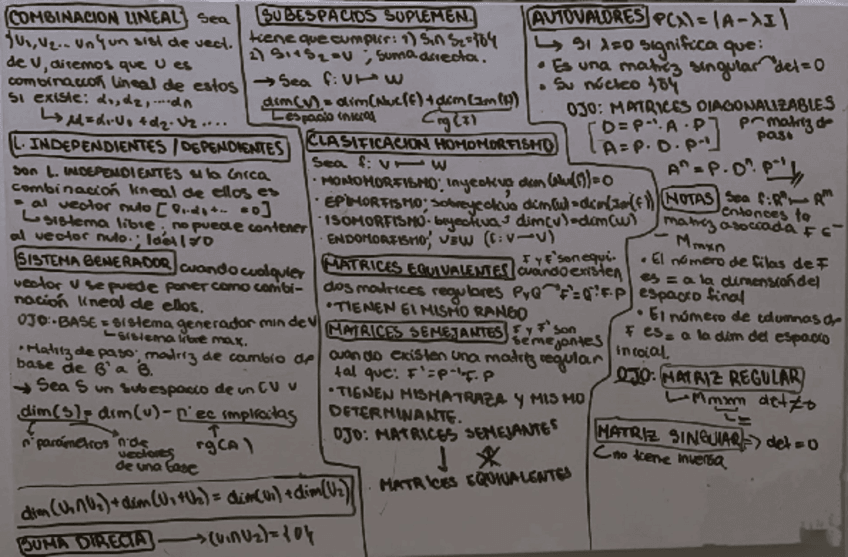 COMBINACION LINEAL Sea
{U1, U2... Un} un sist de vect.
de V, diremos que U es
combinación lineal de estos
si existe: α1, α2, ...αn
↳ M=α1·U1+α2·U2....
L. INDEPENDIENTES / DEPENDIENTES
son L. INDEPENDIENTES si la única
combinación lineal de ellos es
= al vector nulo
↳ sistema libre; no puede contener
al vector nulo.;
SISTEMA GENERADOR cuando cualquier
vector U se puede poner como combi-
nación lineal de ellos.
OJO:·BASE = sistema generador min de V
↳ sistema libre max.
·Matriz de paso: matriz de cambio de
base de B' a B.
→ Sea S un subespacio de un EV V
dim(S) = dim(V) - nº ec implícitas
nº parámetros nº de vectores de una base rg(A)
dim(U1∩U2)+dim(U1+U2) = dim(U1)+dim(U2)
SUMA DIRECTA → (U1∩U2)={0}
SUBESPACIOS SUPLEMEN.
tiene que cumplir: 1) S1∩S2={0}
2) S1+S2=V ; suma directa.
→ Sea f: V → W
dim(V) = dim(Nuc(f)) + dim(Im(f))
↳ espacio inicial
CLASIFICACION HOMOMORFISMO
Sea f: V → W
·MONOMORFISMO: inyectiva dim(Nuc(f))=0
·EPIMORFISMO: sobreyectiva dim(W)=dim(Im(f))
·ISOMORFISMO- biyectiva dim(V)=dim(W)
·ENDOMORFISMO; V=W (f: V→V)
MATRICES EQUIVALENTES F y F' son equi.
cuando existen
dos matrices regulares P y Q F'=Q⁻¹·F·P
·TIENEN El MISMO RANGO
MATRICES SEMEJANTES F y F' son
semejantes
cuando existen una matriz regular
tal que: F'=P⁻¹·F·P
·TIENEN MISMA TRAZA Y MISMO
DETERMINANTE.
OJO: MATRICES SEMEJANTES
↓
MATRICES EQUIVALENTES
AUTOVALORES P(λ)=|A-λI|
↳ Si λ=0 significa que:
·Es una matriz singular det=0
·Su núcleo {0}
OJO: MATRICES DIAGONALIZABLES
[D=P⁻¹·A·P] P matriz de
[A=P·D·P⁻¹] paso
Aⁿ=P·Dⁿ·P⁻¹
NOTAS Sea f:Rⁿ→Rᵐ
entonces la
matriz asociada F ∈
Mmxn
·El número de filas de F
es = a la dimensión del
espacio final
·El número de columnas de
F es = a la dim del espacio
inicial.
OJO: MATRIZ REGULAR
↳ Mmxn det≠0
=
MATRIZ SINGULAR => det=0
no tiene inversa